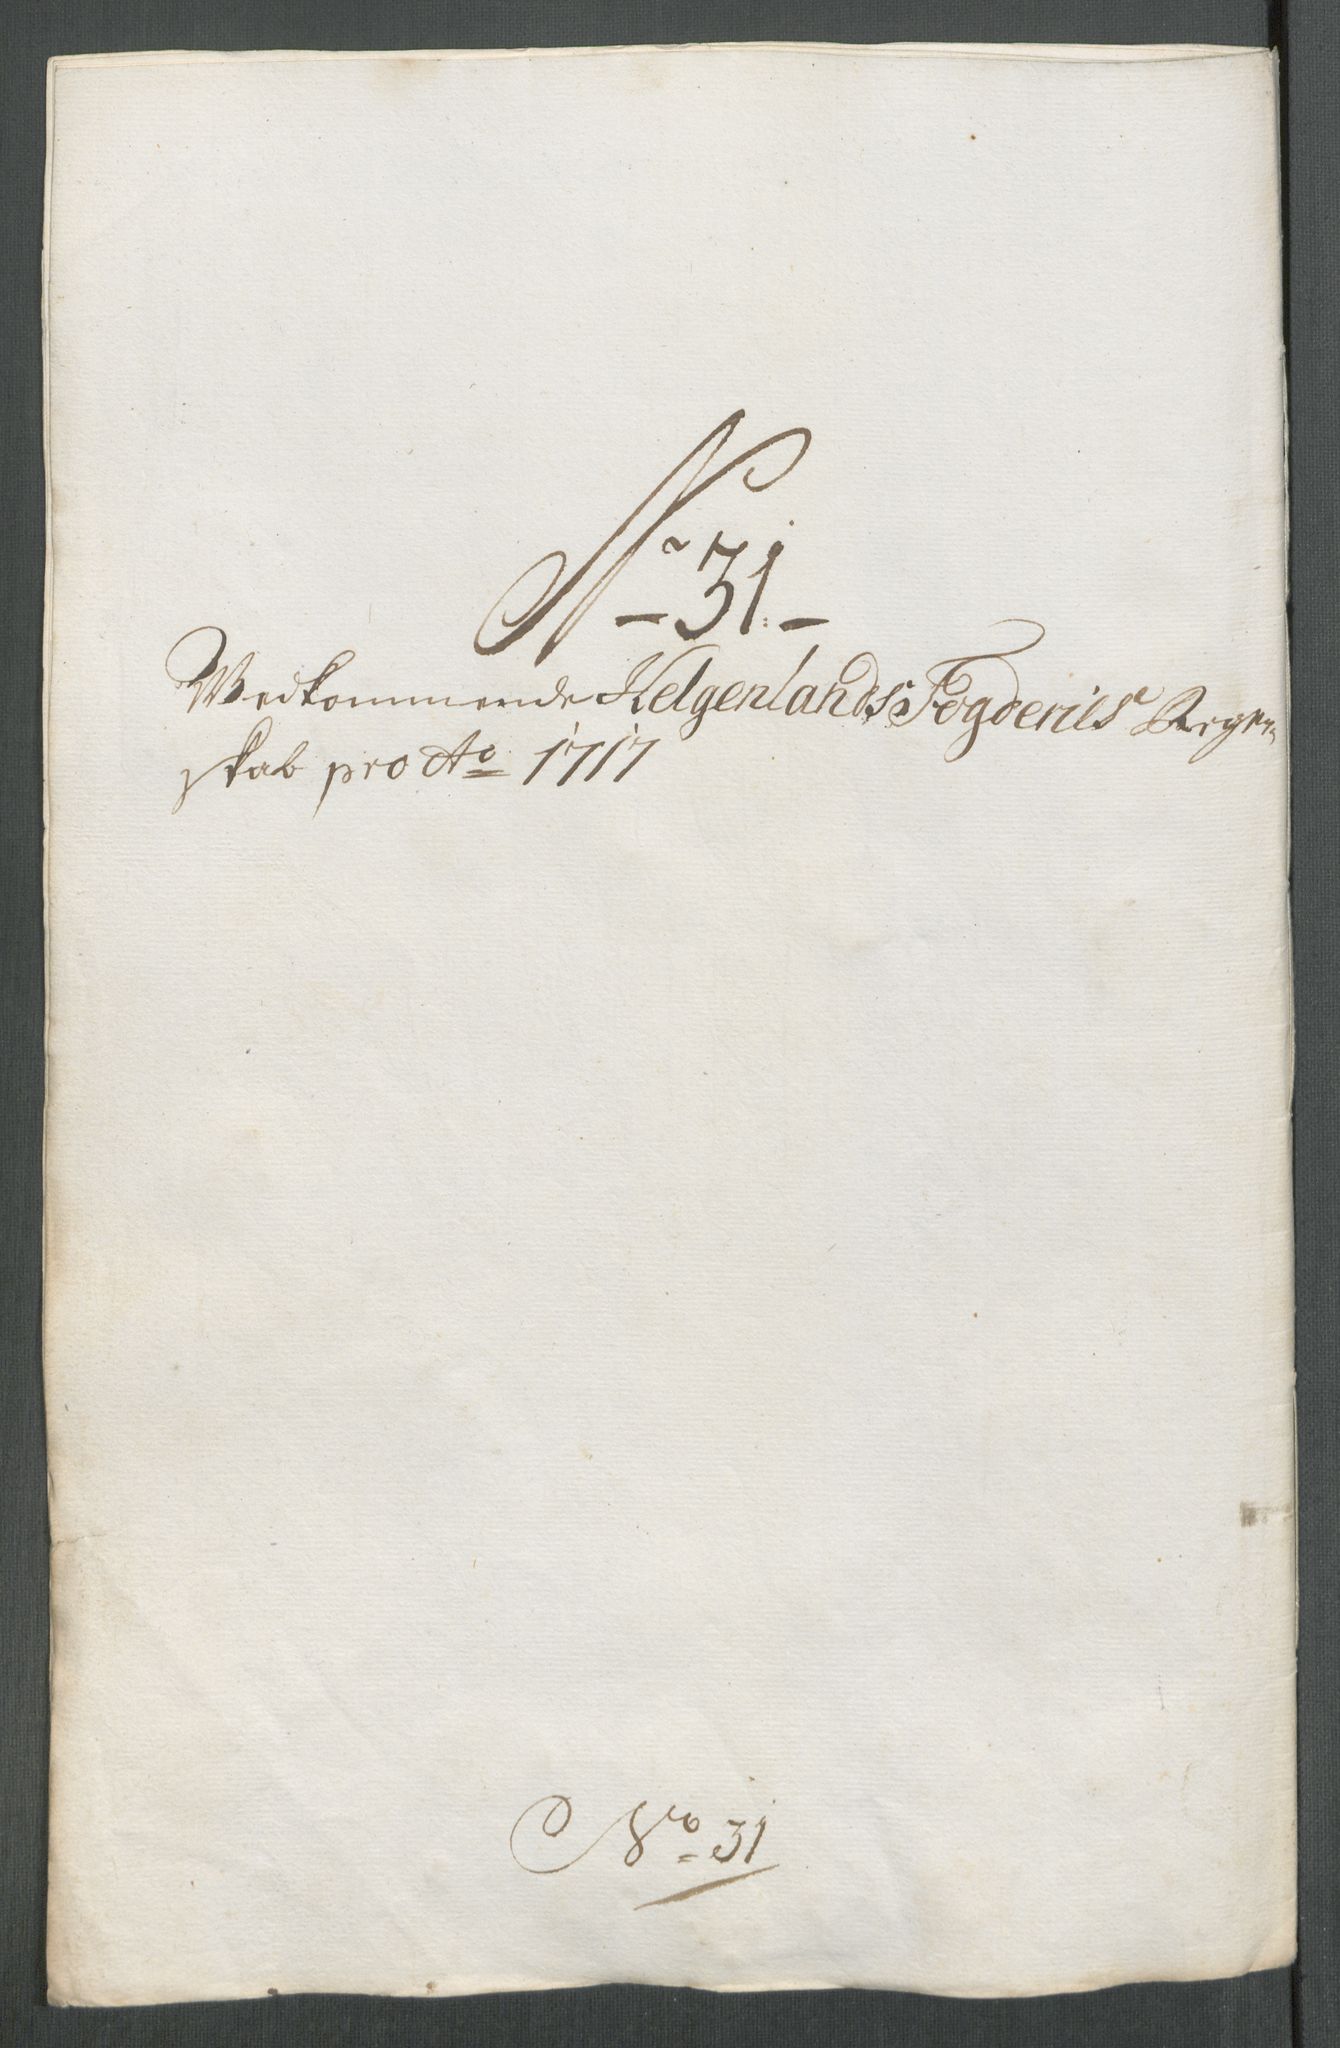 No 31.
Vedkommende Helgenlands Fogderies Regen-
skab pro Ao 1717
No 31